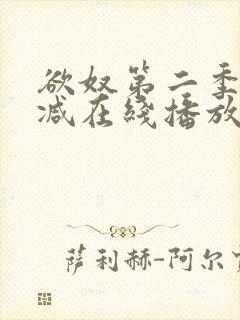 欲奴第二季
减在线播放
萨利赫-阿尔